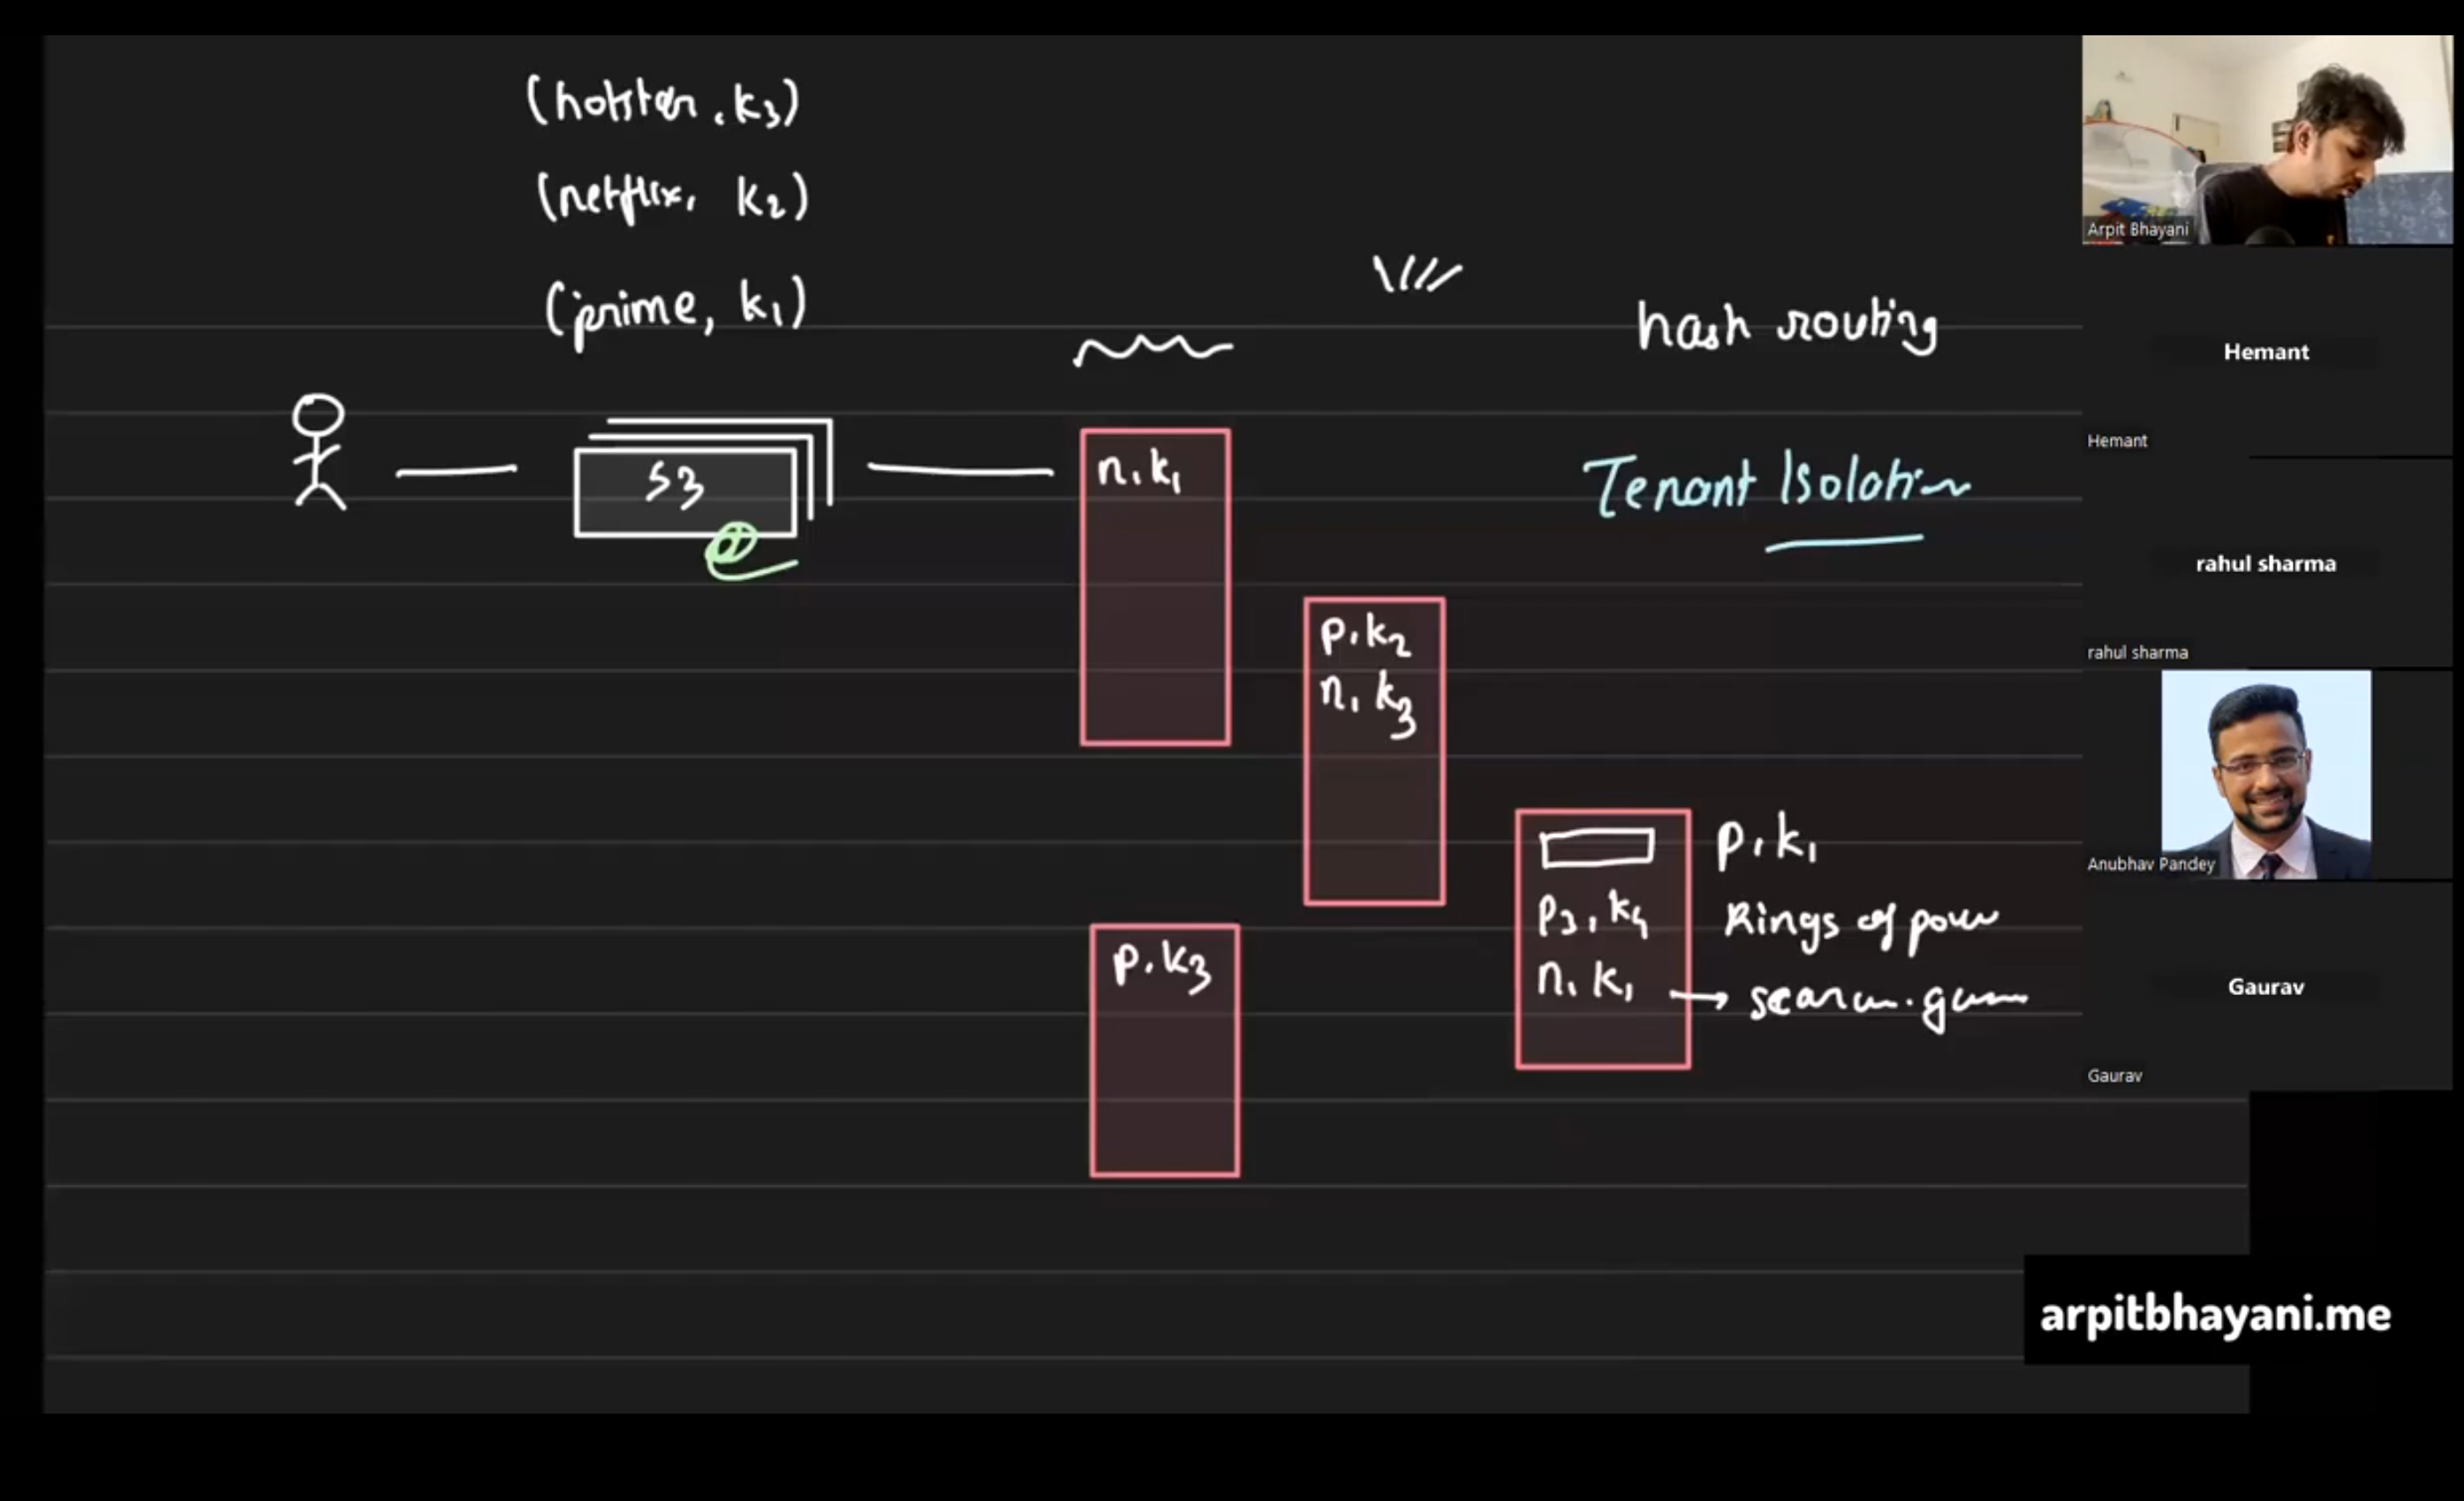 (hotstar, k3)
(netflix, k2)
(prime, k1)
hash routing
S3
Tenant Isolation
n, k1
p, k2
n, k3
p, k1
p3, k4
Rings of power
n, k1
p, k3
Arpit Bhayani
Hemant
Hemant
rahul sharma
rahul sharma
Anubhav Pandey
Gaurav
Gaurav
arpitbhayani.me